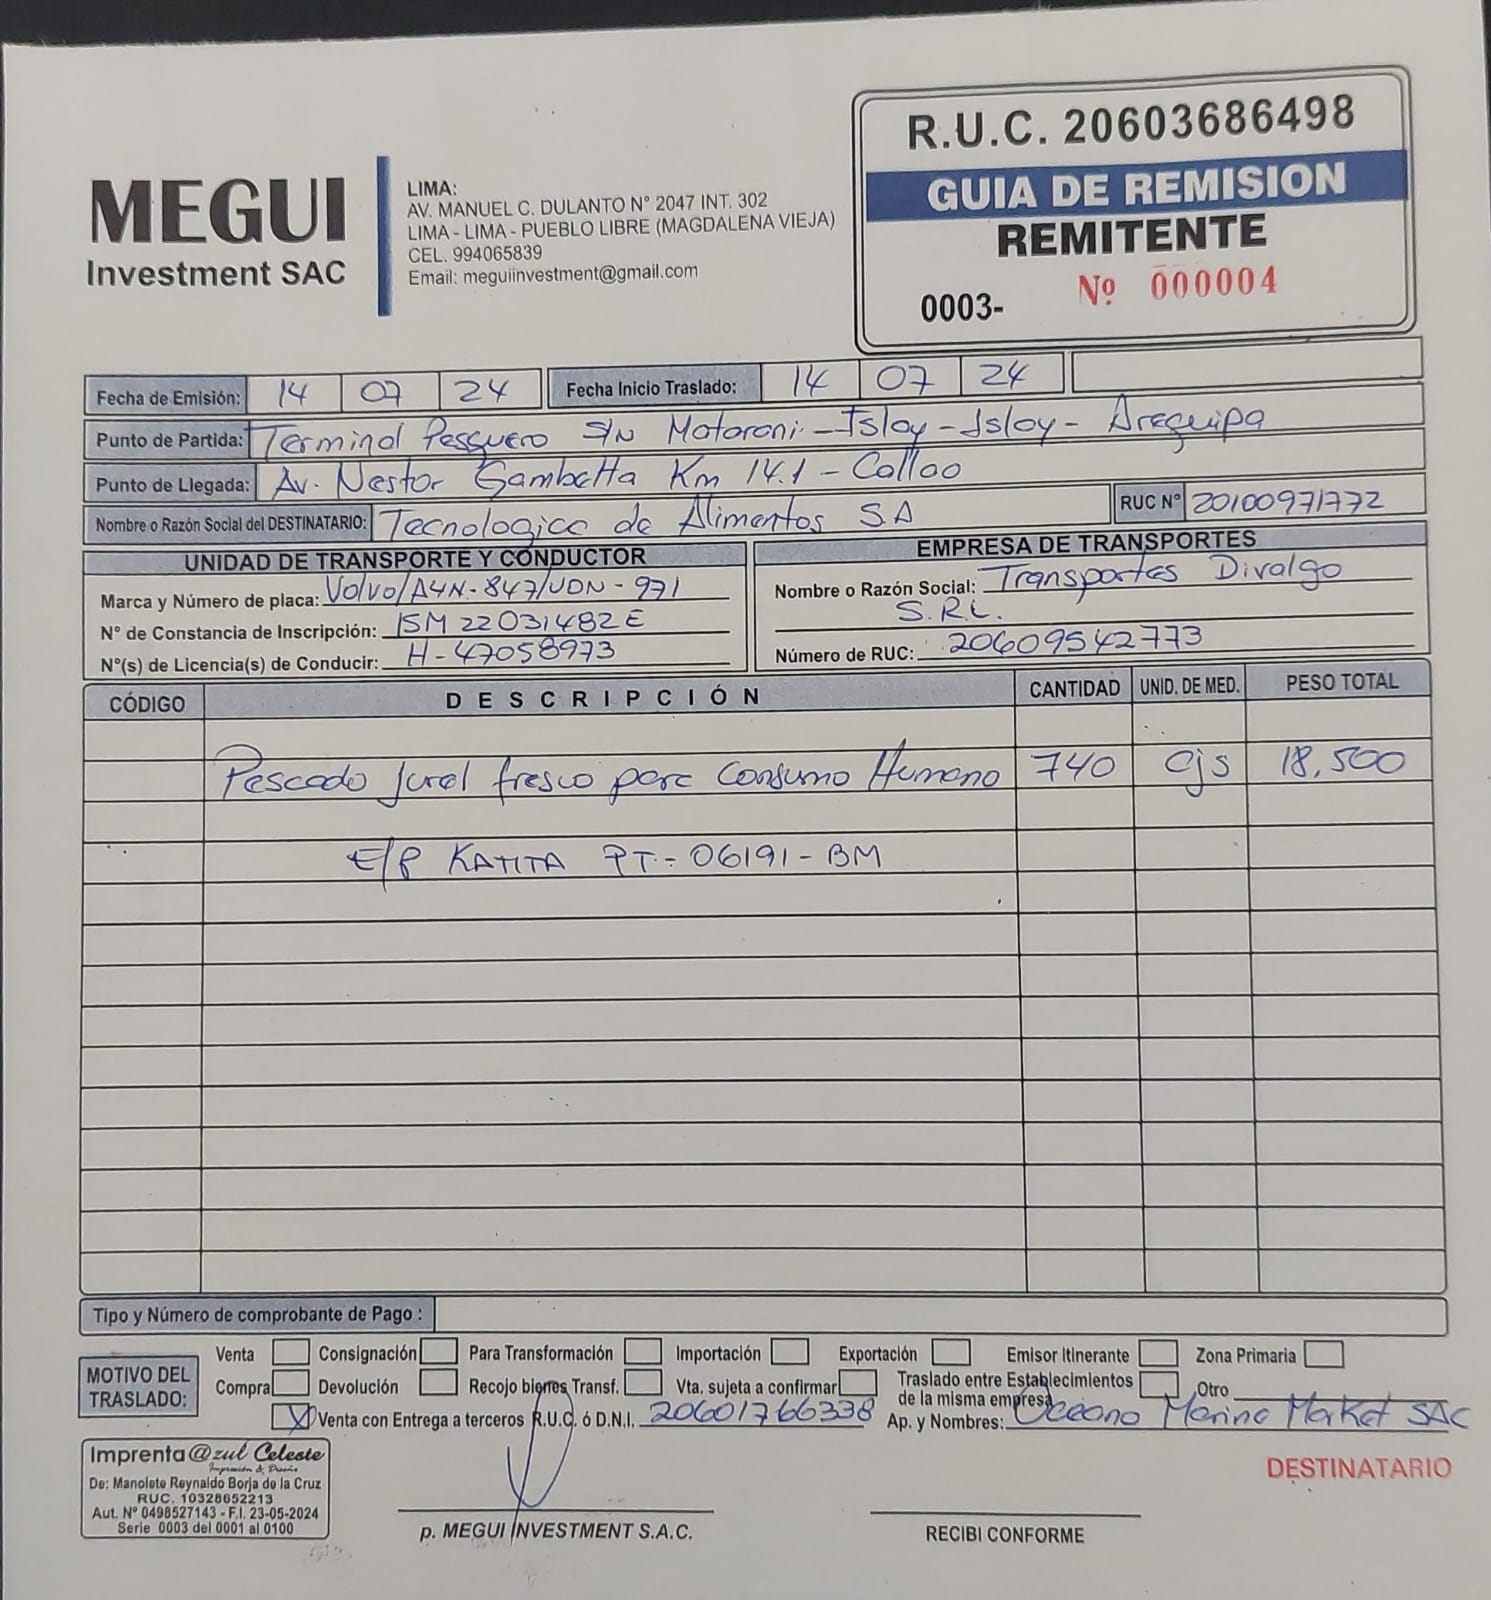 MEGUI
Investment SAC
LIMA:
AV. MANUEL C. DULANTO N° 2047 INT. 302
LIMA - LIMA - PUEBLO LIBRE (MAGDALENA VIEJA)
CEL. 994065839
Email: meguiinvestment@gmail.com
R.U.C. 20603686498
GUIA DE REMISION
REMITENTE
0003- Nº 000004
Fecha de Emisión: 14 07 24 Fecha Inicio Traslado: 14 07 24
Punto de Partida: Terminal Pesquero S/N Matarani - Islay - Islay - Arequipa
Punto de Llegada: Av. Nestor Gambetta Km 14.1 - Callao
Nombre o Razón Social del DESTINATARIO: Tecnologica de Alimentos SA RUC N° 20100971772
UNIDAD DE TRANSPORTE Y CONDUCTOR
Marca y Número de placa: Volvo/A4N-847/VDN-971
N° de Constancia de Inscripción: 15M22031482E
N°(s) de Licencia(s) de Conducir: H-47058973
EMPRESA DE TRANSPORTES
Nombre o Razón Social: Transportes Divalgo
S.R.L.
Número de RUC: 20609542773
CÓDIGO DESCRIPCIÓN CANTIDAD UNID. DE MED. PESO TOTAL
Pescado Jurel fresco para Consumo Humano 740 Cjs 18,500
E/P KATITA PT-06191-BM
Tipo y Número de comprobante de Pago :
MOTIVO DEL TRASLADO:
Venta Consignación Para Transformación Importación Exportación Emisor Itinerante Zona Primaria
Compra Devolución Recojo bienes Transf. Vta. sujeta a confirmar Traslado entre Establecimientos de la misma empresa Otro
X Venta con Entrega a terceros R.U.C. ó D.N.I. 20601766338 Ap. y Nombres: Oceano Marino Market SAC
Imprenta @zul Celeste
Impresión & Diseño
De: Manolete Reynaldo Borja de la Cruz
RUC. 10328652213
Aut. N° 0498527143 - F.I. 23-05-2024
Serie 0003 del 0001 al 0100
p. MEGUI INVESTMENT S.A.C.
RECIBI CONFORME
DESTINATARIO